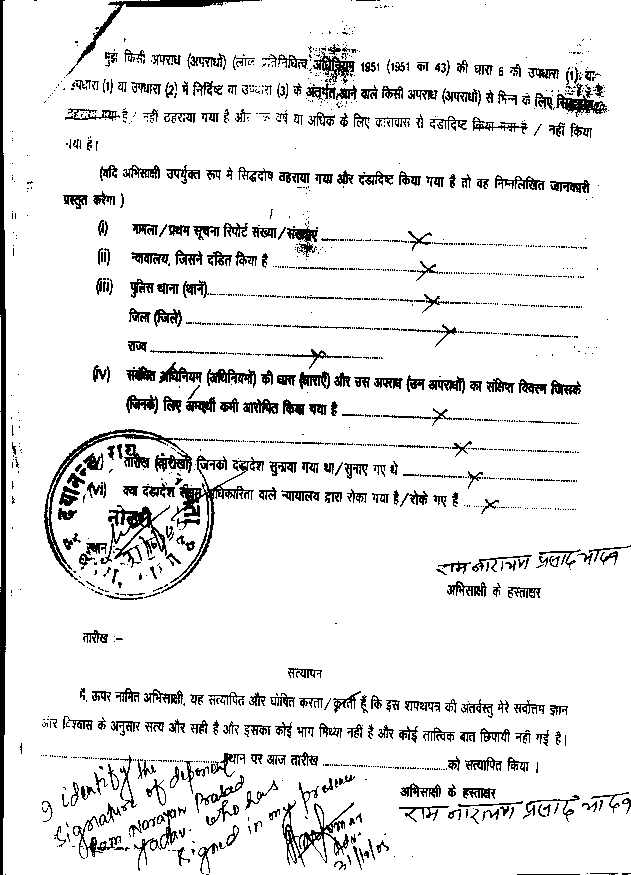 मुझे किसी अपराध (अपराधों) (लोक प्रतिनिधित्व अधिनियम 1951 (1951 का 43) की धारा 8 की उपधारा (1) या
उपधारा (1) या उपधारा (2) में निर्दिष्ट या उपधारा (3) के अंतर्गत आने वाले किसी अपराध (अपराधों) से भिन्न के लिए सिद्धदोष
ठहराया गया है / नहीं ठहराया गया है और एक वर्ष या अधिक के लिए कारावास से दंडादिष्ट किया गया है / नहीं किया
गया है।
(यदि अभिसाक्षी उपर्युक्त रूप मे सिद्धदोष ठहराया गया और दंडादिष्ट किया गया है तो वह निम्नलिखित जानकारी
प्रस्तुत करेगा )
(i) मामला/प्रथम सूचना रिपोर्ट संख्या/संख्याएं
(ii) न्यायालय, जिसने दंडित किया है
(iii) पुलिस थाना (थानें)
जिला (जिलें)
राज्य
(iv) संबंधित अधिनियम (अधिनियमों) की धारा (धाराएँ) और उस अपराध (उन अपराधों) का संक्षिप्त विवरण जिसके
(जिनके) लिए अभ्यर्थी कमी आरोपित किया गया है
तारीख (तारीखों) जिनको दंडादेश सुनाया गया था/सुनाए गए थे
(vi) क्या दंडादेश अधिकारिता वाले न्यायालय द्वारा रोका गया है/रोके गए हैं
दयानन्द
नोटरी
स्थान
राम नारायण प्रसाद यादव
अभिसाक्षी के हस्ताक्षर
तारीख :-
सत्यापन
मैं, ऊपर नामित अभिसाक्षी, यह सत्यापित और घोषित करता/करती हूँ कि इस शपथपत्र की अंतर्वस्तु मेरे सर्वोत्तम ज्ञान
और विश्वास के अनुसार सत्य और सही है और इसका कोई भाग मिथ्या नहीं है और कोई तात्विक बात छिपायी नही गई है।
स्थान पर आज तारीख को सत्यापित किया ।
अभिसाक्षी के हस्ताक्षर
राम नारायण प्रसाद यादव
I identify the
signature of deponent
Ram Narayan Prasad
Yadav who has
signed in my presence
Adv.